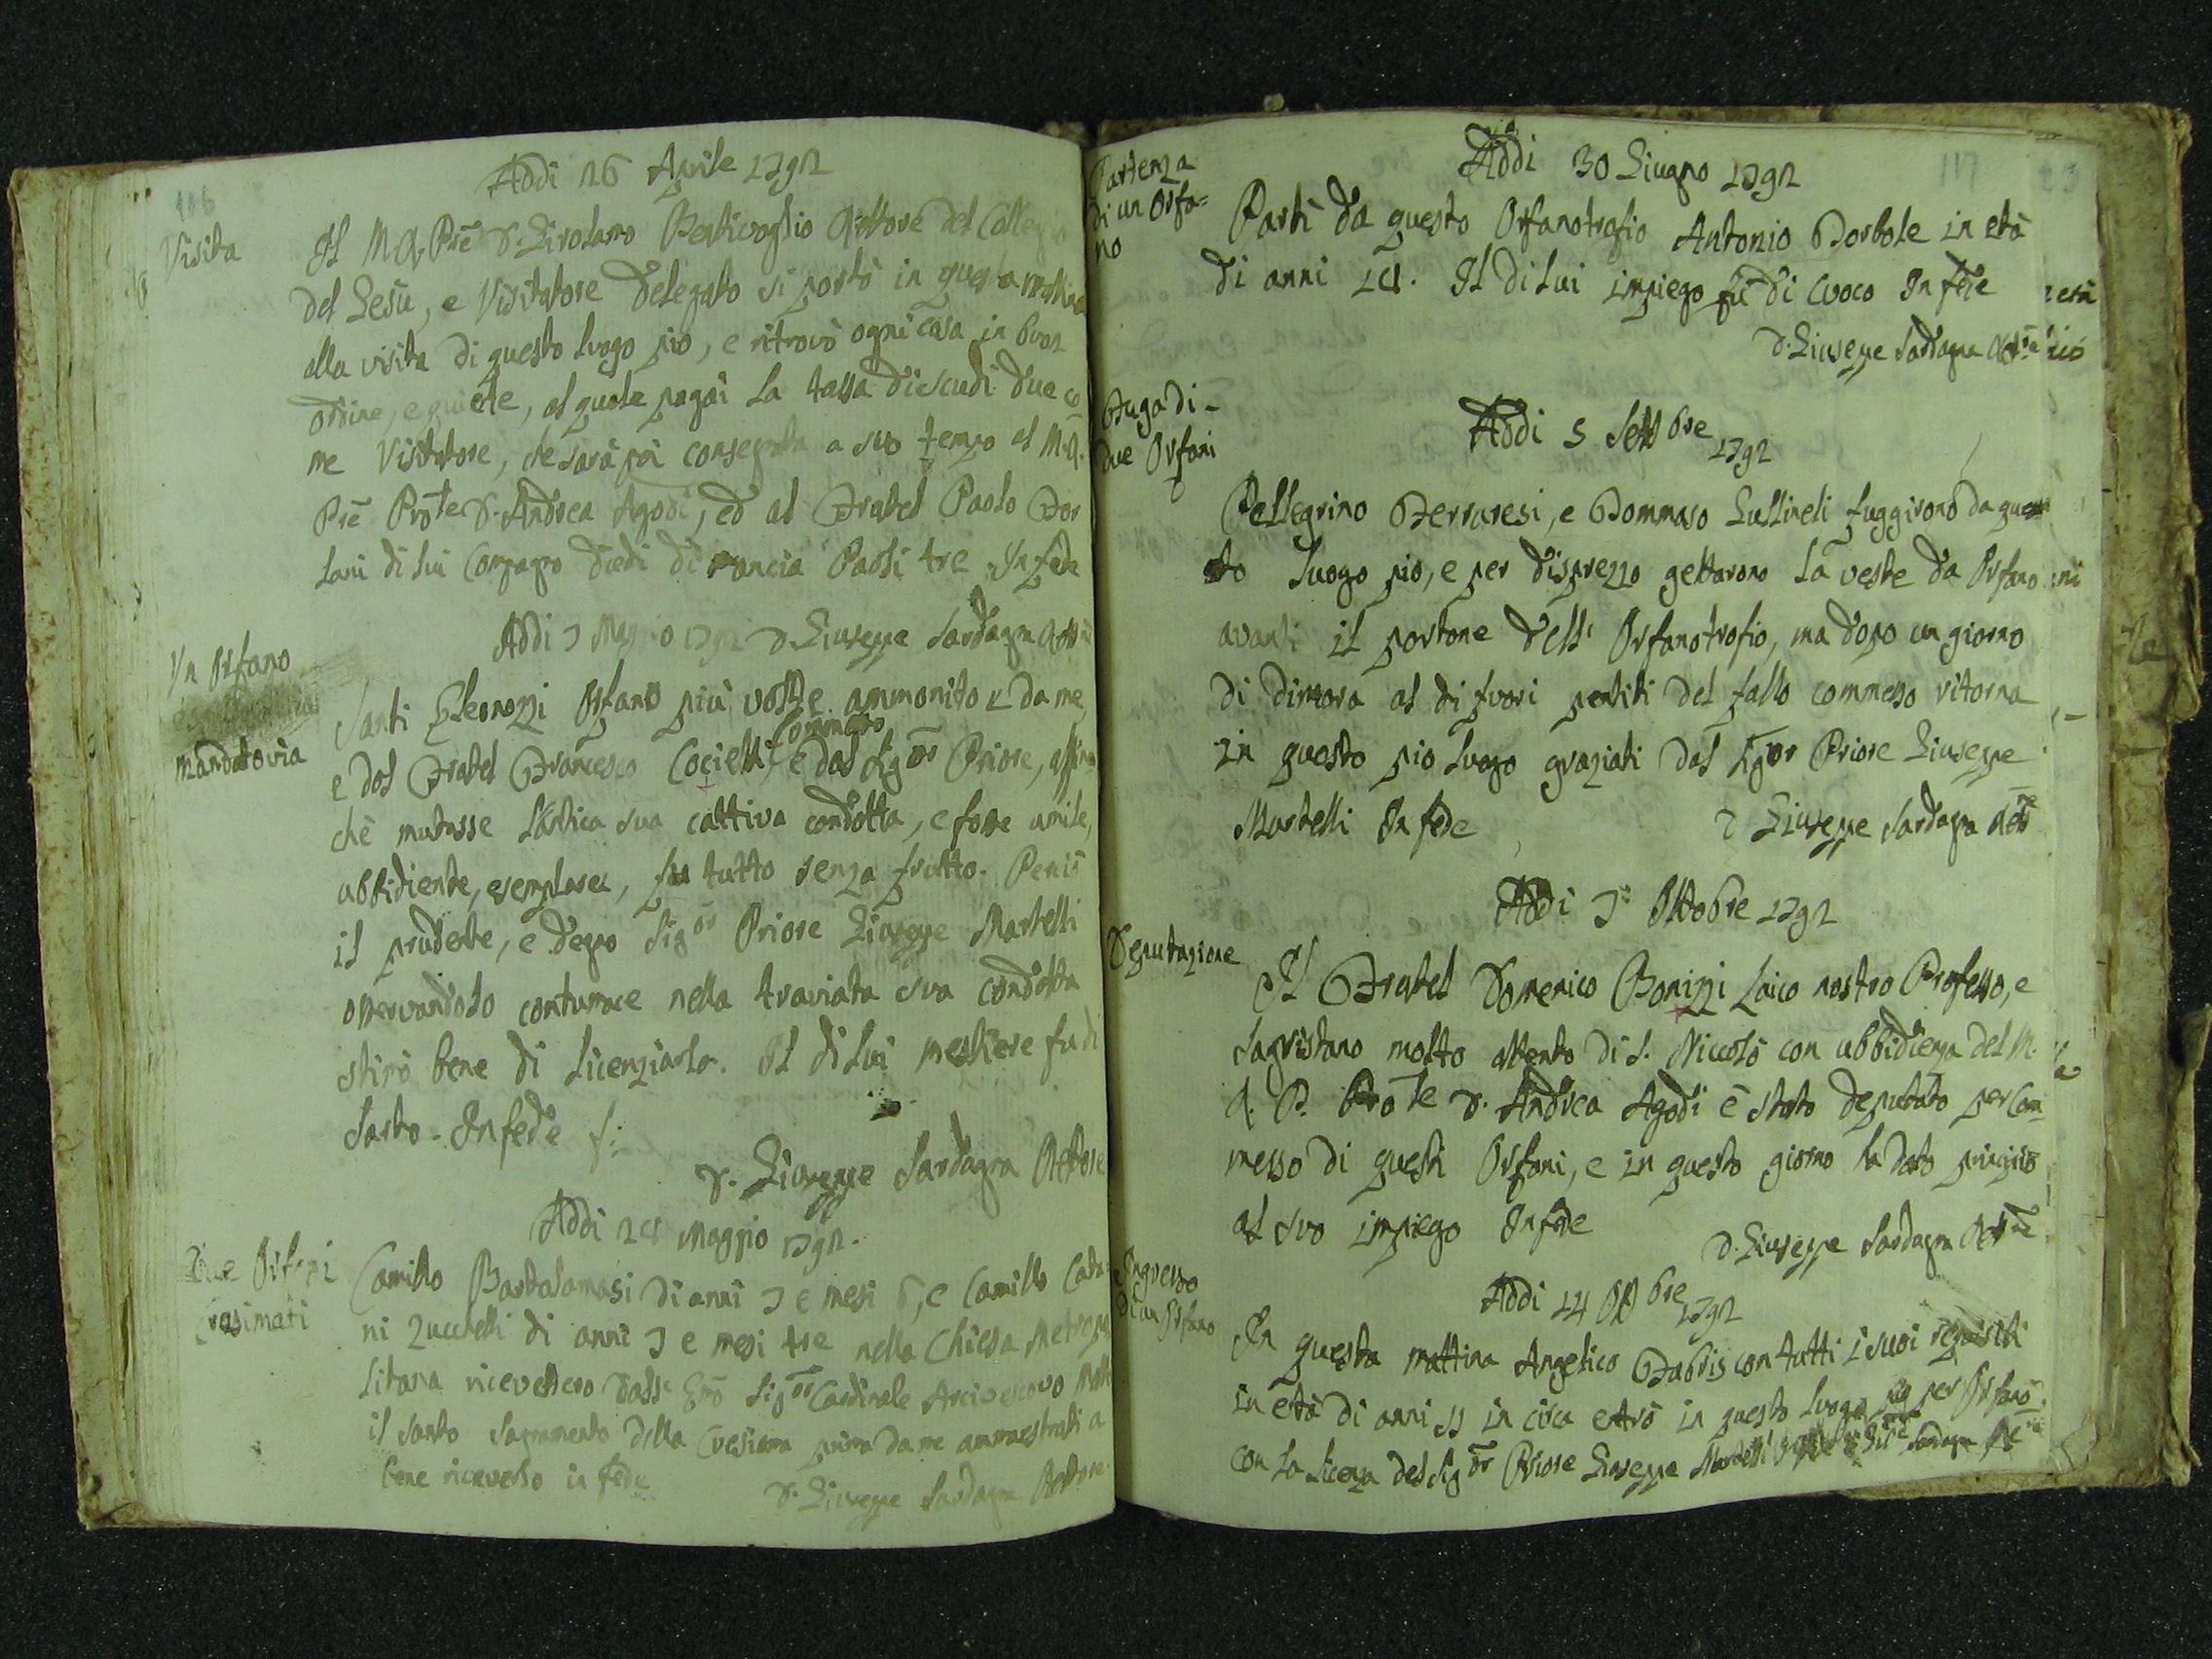 116
Addi 26 Aprile 1792
Visita
Il M. R. Prē D. Girolamo Bentivoglio Rettore del Collegio
del Gesù, e Visitatore Delegato si portò in questa mattina
alla visita di questo luogo pio, e ritrovò ogni cosa in buon
ordine, e quiete, al quale pagai la tassa di scudi due co
me Visitatore, che sarà poi consegnata a suo tempo al M. R.
Prē Prōle D. Andrea Agodi, ed al Fratel Paolo For
lani di lui Compagno diedi di mancia Paoli tre. In fede
D. Giuseppe Sardagna Rettrē
Addi 7 Maggio 1792
Un Orfano
mandato via
Santi Eleonozzi Orfano più volte ammonito e da me,
e dal Fratel Francesco Cocielli Commesso, e dal Sigor Priore, affin
chè mutasse l'antica sua cattiva condotta, e fosse umile,
ubbidiente, esemplare, fu tutto senza frutto. Perciò
il prudente, e degno Sigor Priore Giuseppe Martelli
osservandolo contumace nella traviata sua condotta
stimò bene di licenziarlo. Il di lui mestiere fu di
Sarto. In fede
D. Giuseppe Sardagna Rettore
Addi 28 Maggio 1792.
Due Orfani
Cresimati
Camillo Bartalomasi di anni 7 e mesi 6, e Camillo Cata-
ni Zuccelli di anni 7 e mesi tre nella Chiesa Metropo
litana ricevettero dall' Emō Sigor Cardinale Arcivescovo
il Santo Sagramento della Cresima prima da me ammaestrati a
bene riceverlo in fede
D. Giuseppe Sardagna Rettore
117
Addi 30 Giugno 1792
Partenza
di un Orfa=
no
Partì da questo Orfanotrofio Antonio Borbole in età
di anni 18. Il di lui impiego fù di Cuoco In fede
D. Giuseppe Sardagna Rettrē
Addi 5 Settbre 1792
Fuga di
due Orfani
Pellegrino Ferraresi, e Tommaso Gullineli fuggirono da que
sto luogo pio, e per disprezzo gettarono la veste da Orfano
avanti il portone dell' Orfanotrofio, ma dopo un giorno
di dimora al di fuori pentiti del fallo commesso ritorna
in questo pio luogo graziati dal Sigor Priore Giuseppe
Martelli In fede
D Giuseppe Sardagna Rettrē
Addi 7 Ottobre 1792
Deputazione
Il Fratel Domenico Bonizzi Laico nostro Professo, e
Sagristano molto attento di S. Niccolò con ubbidienza del M.
R. P. Prōle D. Andrea Agodi è stato deputato per Com
messo di questi Orfani, e in questo giorno ha dato principio
al suo impiego In fede
D. Giuseppe Sardagna Rettrē
Addi 14 Ottbre 1792
Ingresso
di un Orfano
In questa mattina Angelico Fabris con tutti i suoi requisiti
in età di anni 11 in circa entrò in questo luogo pio per Orfano
con la licenza del Sigor Priore Giuseppe Martelli Sardagna